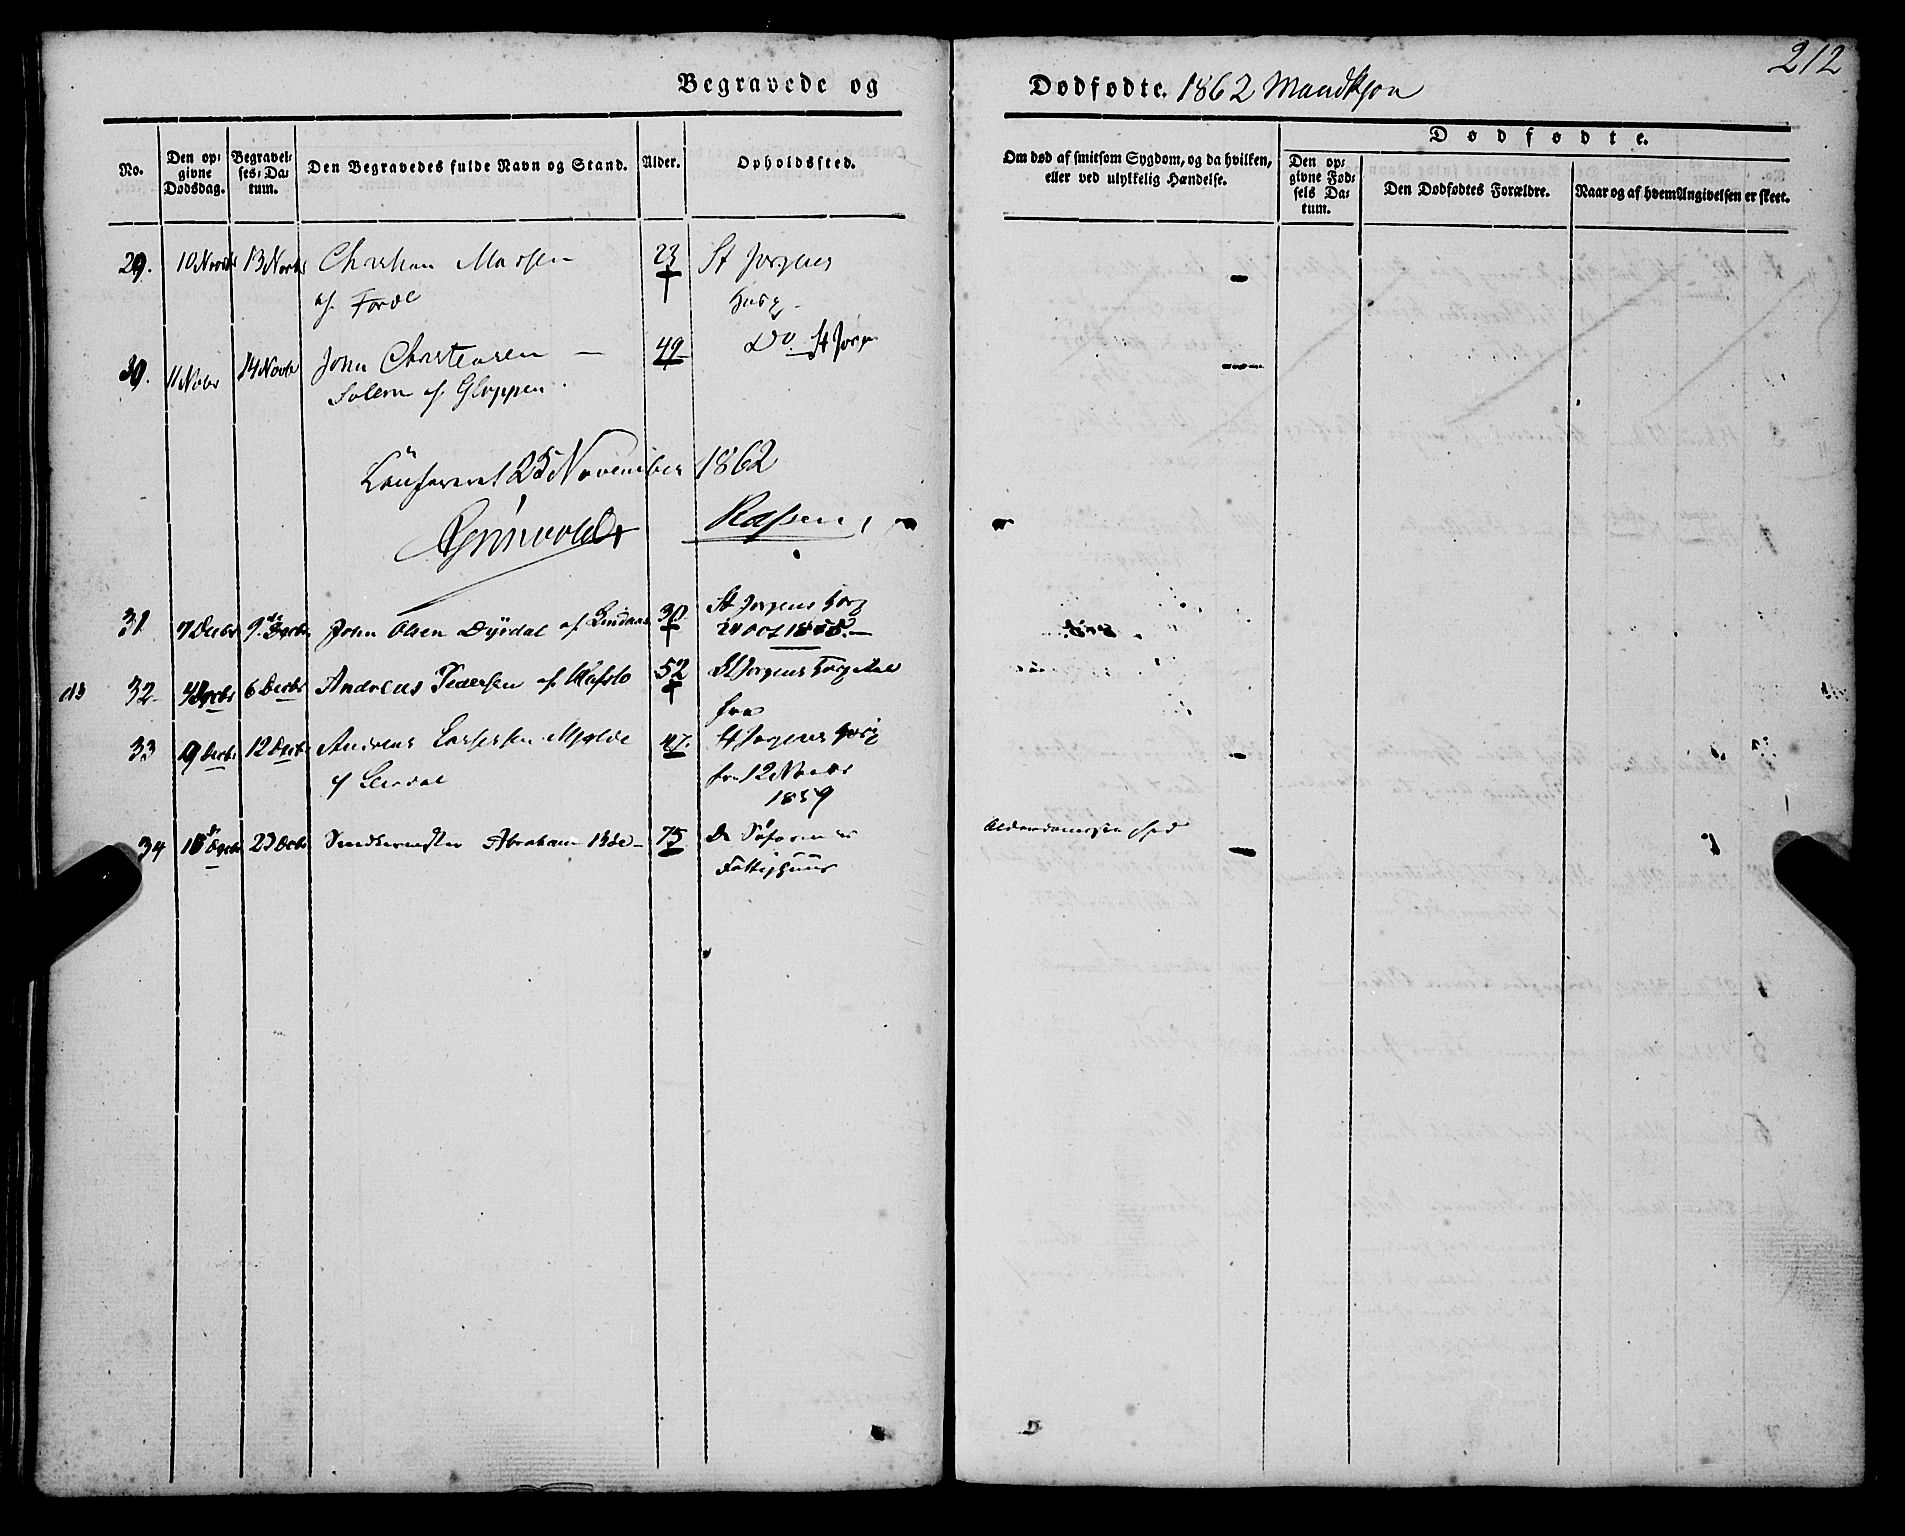 212
Begravede og Dødfødte. 1862 Mandkjøn
No.
Den opgivne Dødsdag.
Begravelses-Datum.
Den Begravedes fulde Navn og Stand.
Alder.
Opholdssted.
Om død af smitsom Sygdom, og da hvilken, eller ved ulykkelig Hændelse.
Dødfødte.
Den opgivne Fødsels Datum.
Den Dødfødtes Forældre.
Naar og af hvem Angivelsen er skeet.
29. 10 Novbr 13 Novbr Christian Madsen 23 St Jørgens
af Førde Hosp
30. 11 Novbr 14 Novbr John Christensen — 49 Do St Jørg
Solem af Gloppen.
Conferert 25 November 1862
Grönvold
31 7 Decbr 9 Decbr John Olsen Dyrdal af Lindaas 30 St Jørgens Hosp
24 Oct 1858. —
32 4 Decbr 6 Decbr Andreas Pedersen af Hafslo 52 St Jørgens Hospital
fra
33 9 Decbr 12 Decbr Andreas Lassesen Mjelde 47. St Jørgens Hosp
af fra 12 Novbr
1859
34 Decbr 23 Decbr Abraham Bøe — 75 De Søfarendes
Fattighuus